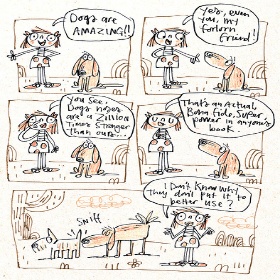 Dogs are
AMAZING!!
Yes, even
you, my
forlorn
friend!
You see,
Dogs noses
are a ZILLION
Times stronger
than ours...
That's an actual,
Bona fide, Super
power in anyone's
book
Don't know why
they don't put it to
better use!
SNIFF